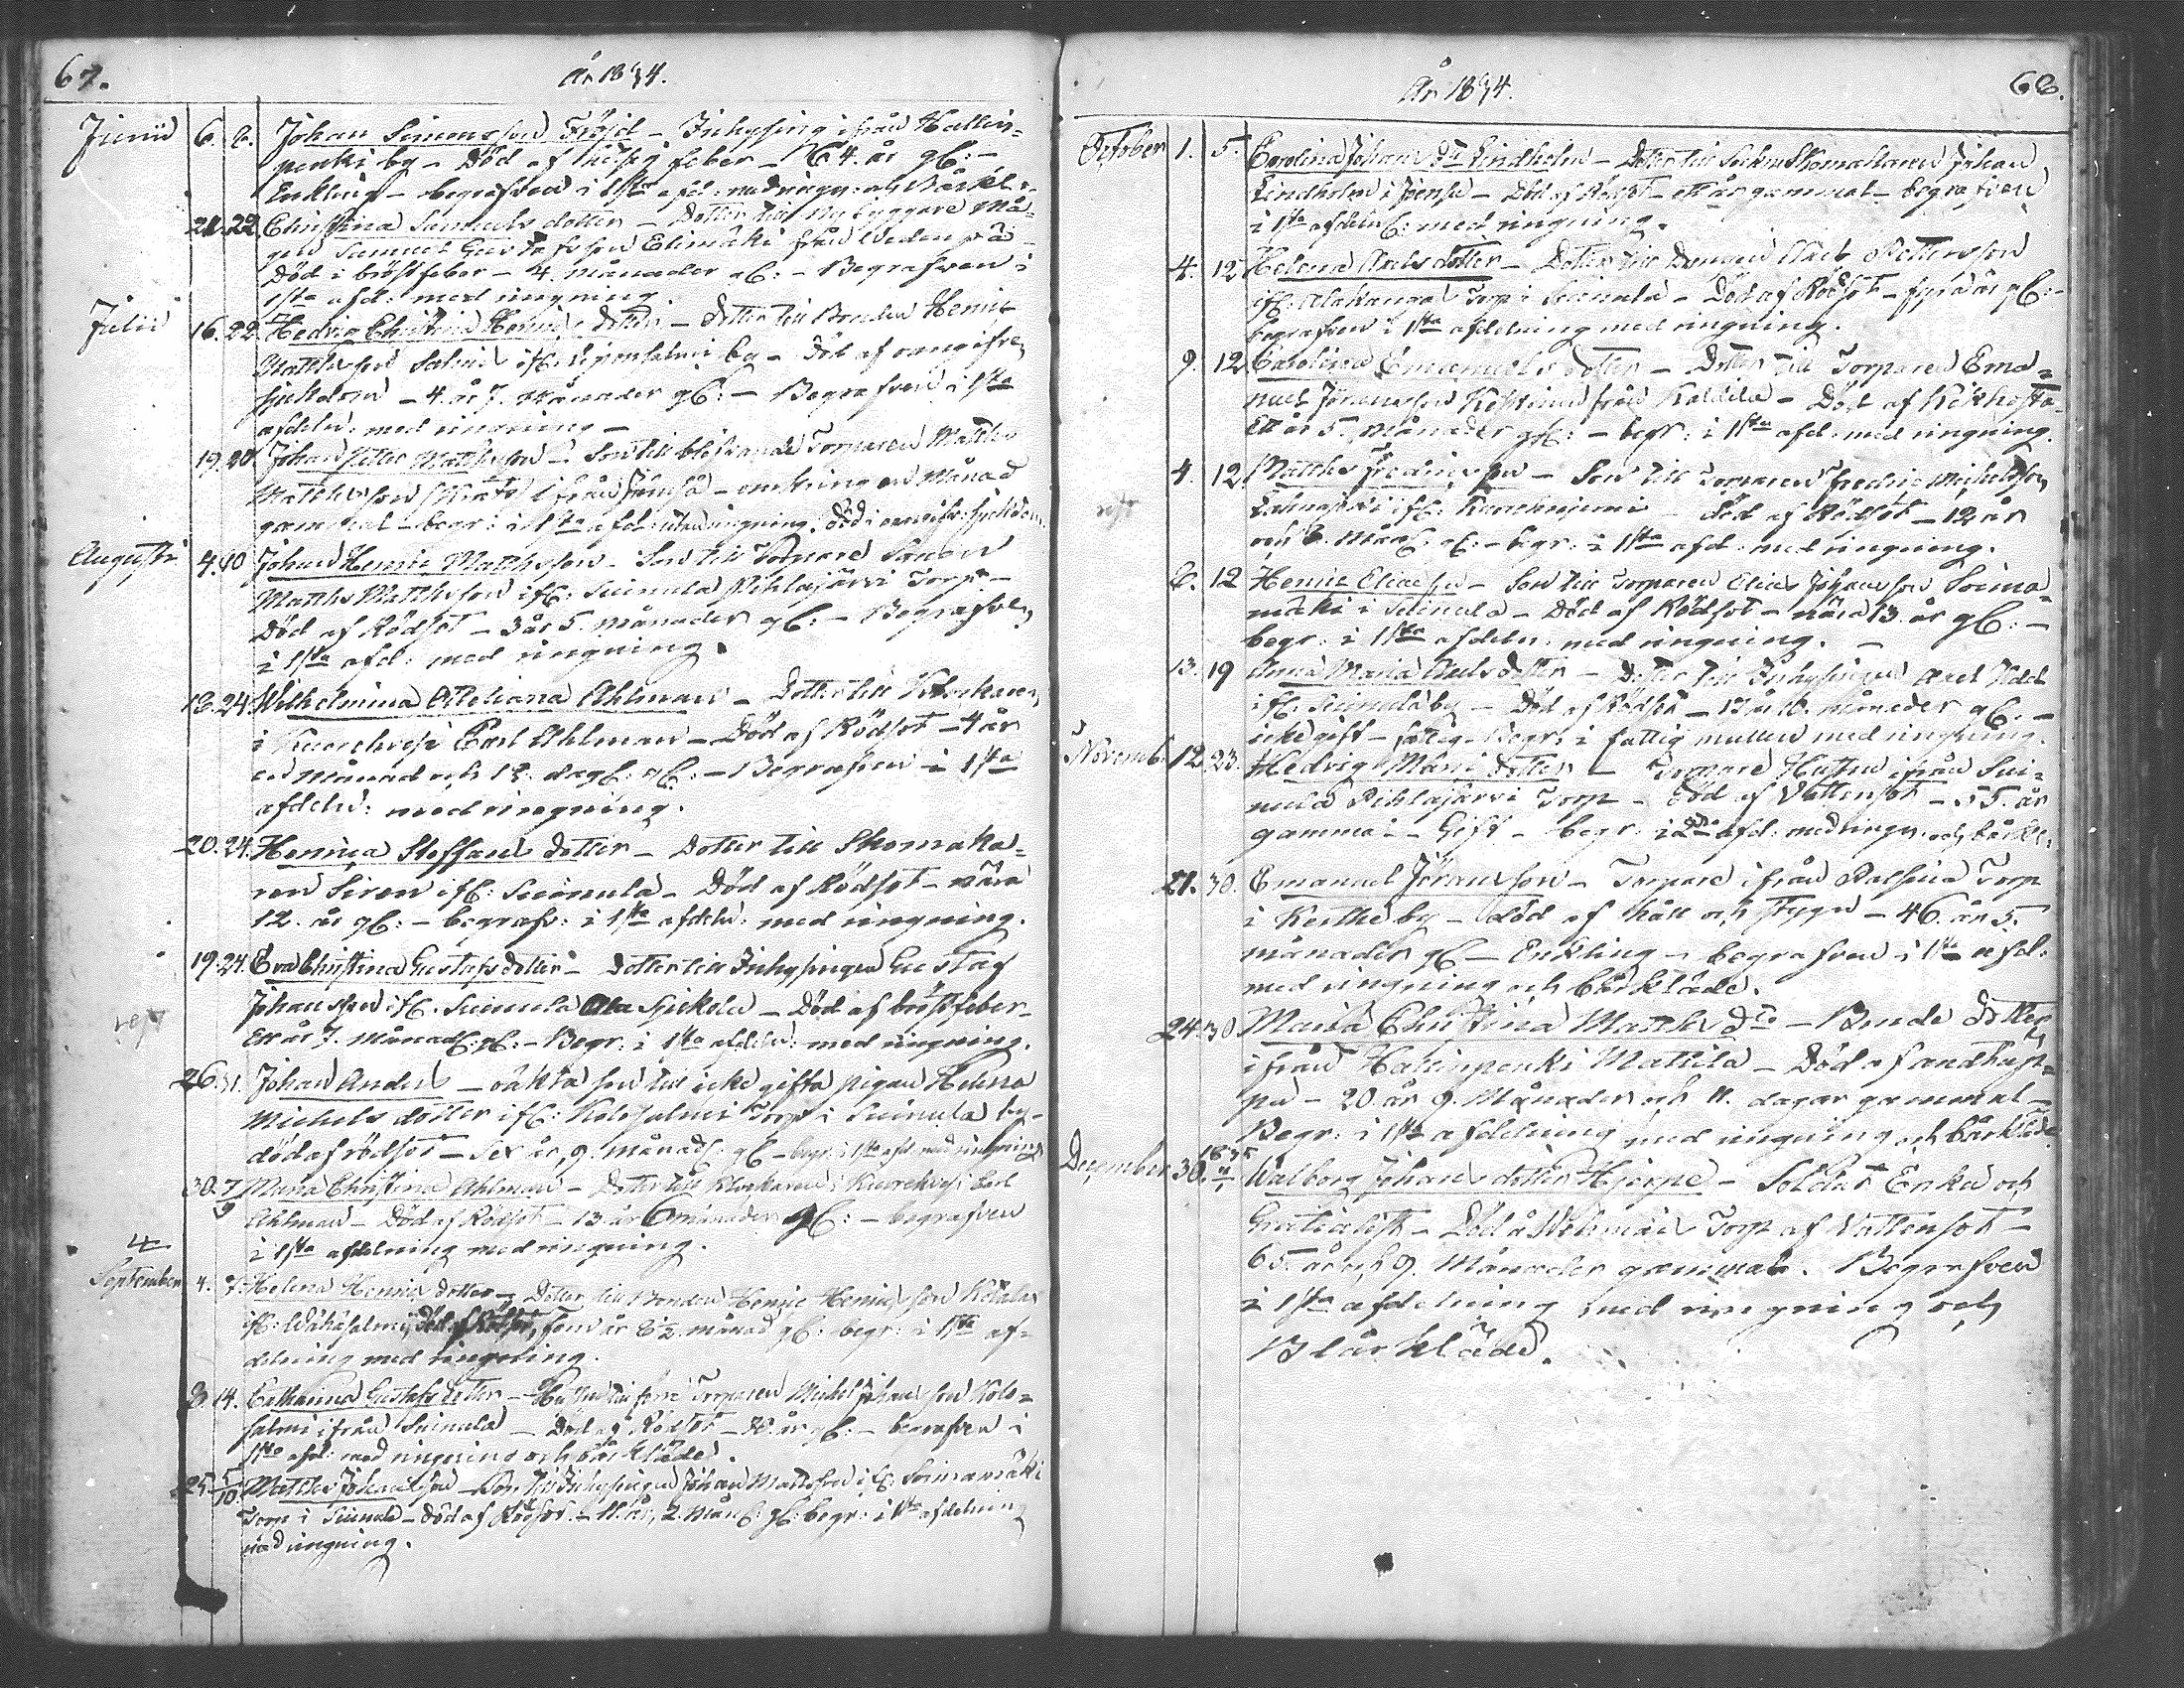 67.
År 1834.
Junii 6. 8. Johan Simonsson Fröjd - Inhysing ifrån Hallin=
penki by - Död af hetsig feber - 64. år gl: -
Enkling - begrafven i 1sta afd: med ringn: och Bårkl:
21. 22. Christina Samuels dotter - Dotter till Nybyggare Må=
gen Samuel Gustafsson Elimäki från
Död i bröstfeber - 4. månader gl: - Begrafven i
1sta afd: med ringning.
Julii 16. 22. Hedvig Christina Henrics dotter - Dotter till Bonden Henric
Matthsson Salmi ifr: by - Död af oangifven
sjukdom - 4. år 7. Månader gl: - Begrafven i 1sta
afdeln: med ringning -
19. 20. Johan Petter Matthsson - Son till blifvande Torparen Matths
Matthsson ifrån - omkring en Månad
gammal - begr: i 1sta afd: utan ringning. Död i oangifv: sjukdom.
Augusti 4. 10 Johan Henric Matthsson - Son till Torpare Sonen
Matths Matthsson ifr: Suinula Pihlajärvi Torp -
Död af Rödsot - 3 år 5. månader gl: - Begrafven
i 1sta afd: med ringning.
18. 24. Wilhelmina Ahlman - Dotter till Klockaren
i Kuorehvesi Carl Ahlman - Död af Rödsot - 4 år
en Månad och 12. dag: gl: - Begrafven i 1sta
afdeln: med ringning.
20. 24. Henrica Staffans dotter - Dotter till Skomaka=
ren Siren ifr: Suinula - Död af Rödsot - nära
12. år gl: - begrafv: i 1sta afdeln: med ringning.
19. 24. Eva Christina Gustafs dotter - Dotter till Inhysingen Gustaf
Johansson ifr. Suinula Ala Spikola - Död af bröstfeber -
Ett år 7. Månad: gl: - Begr: i 1sta afdeln: med ringning.
26. 31. Johan Anders - oäkta son till icke gifta pigan Helena
Michels dotter ifr: Kolosalmi Torp i Suinula by -
död af rödsot - Sex år, 9. månad: gl - begr: i 1sta afd: med ringning
30. 7/9 Maria Christina Ahlman - Dotter till Klockaren i Kuorehvesi Carl
Ahlman - Död af Rödsot - 13 år 6 månader gl: - begrafven
i 1sta afdelning med ringning.
September 4. 7. Helena Henrics dotter - Dotter till Bonden Henric Henricsson
ifr: Wähäsalmi, Död af Rödsot, fem år 8 1/2 månad gl: begr: i 1sta af=
delning med ringning.
8. 14. Catharina Gustafs dotter - Hustru till förre Torparen Michel Johansson Kolo=
salmi ifrån Suinula - Död af Rödsot - år gl: - begrafven i
1sta afd: med ringning och bårkläde.
25. 5/10. Matths Johansson - Son till Inhysingen Johan Mattsson ifr: Soimamäki
Torp i Suinula - död af Rödsot - 11. år, 2. mån: gl: begr: i 1sta afdelning
med ringning.
68.
År 1834.
October 1. 5. Carolina Johans Dr Lindholm - Dotter till Sockne Skomakaren Johan
Lindholm i - Död af Rödsot - ett år gammal - begrafven
i 1sta afdeln: med ringning.
4. 12 Helena Axels dotter - Dotter till Axel Pettersson
ifr: Alakangas Torp i Suinula - Död af Rödsot - fyra år gl: -
begrafven i 1sta afdelning med ringning.
9. 12 Carolina Emanuels dotter - Dotter till Torparen Ema=
nuel Jöransson från Kaldila - Död af Kikhosta
Ett år 5. Månader gl: - begr: i 1sta afd: med ringning.
4. 12 Matths Fredricsson - Son till Torparen Fredric Michelsson
ifr: Kuorehvesi - Död af Rödsot - 12 år
och 8. Mån: gl: - begr: i 1sta afd: med ringning.
8. 12 Henric Eliasson - Son till Torparen Elias Johansson Soima=
mäki i Suinula - Död af Rödsot - nära 13. år gl: -
begr: i 1sta afdeln: med ringning. -
13. 19 Anna Maria Axelsdotter - Dotter till Inhysingen Axel
ifr: Suinula by - Död af Rödsot - 17 år månader gl: -
icke gift - fattig - Begr: i fattig mullen med ringning.
Novemb: 12. 23. Hedvig Matts dotter - Torpare Hustru ifrån Sui=
nula Pihlajärvi Torp - Död af Vattensot - 55. år
gammal - Gift - begr: i 2dra afd: med ringn: och bårkl:
21. 30. Emanuel Jöransson - Torpare ifrån Torp
i Keithe by - död af håll och styng - 46. år 5.
månader gl - Enkling - begrafven i 1sta afd:
med ringning och bårkläde.
24. 30 Maria Christina Matths Dr - Bonde Dotter
ifrån Hallinpenki Mattila - Död af andtäp=
pa - 20. år 9. Månader och 11. dagar gammal -
Begr: i 1sta afdelning med ringning och bårkläde
December 30. 1835 Walborg Johans dotter Hjerpe - Soldat Enka och
Gratialist - Död å Torp af Vattensot -
65. år och 9. Månader gammal. Begrafven
i 1sta afdelning med ringning och
Bårkläde.